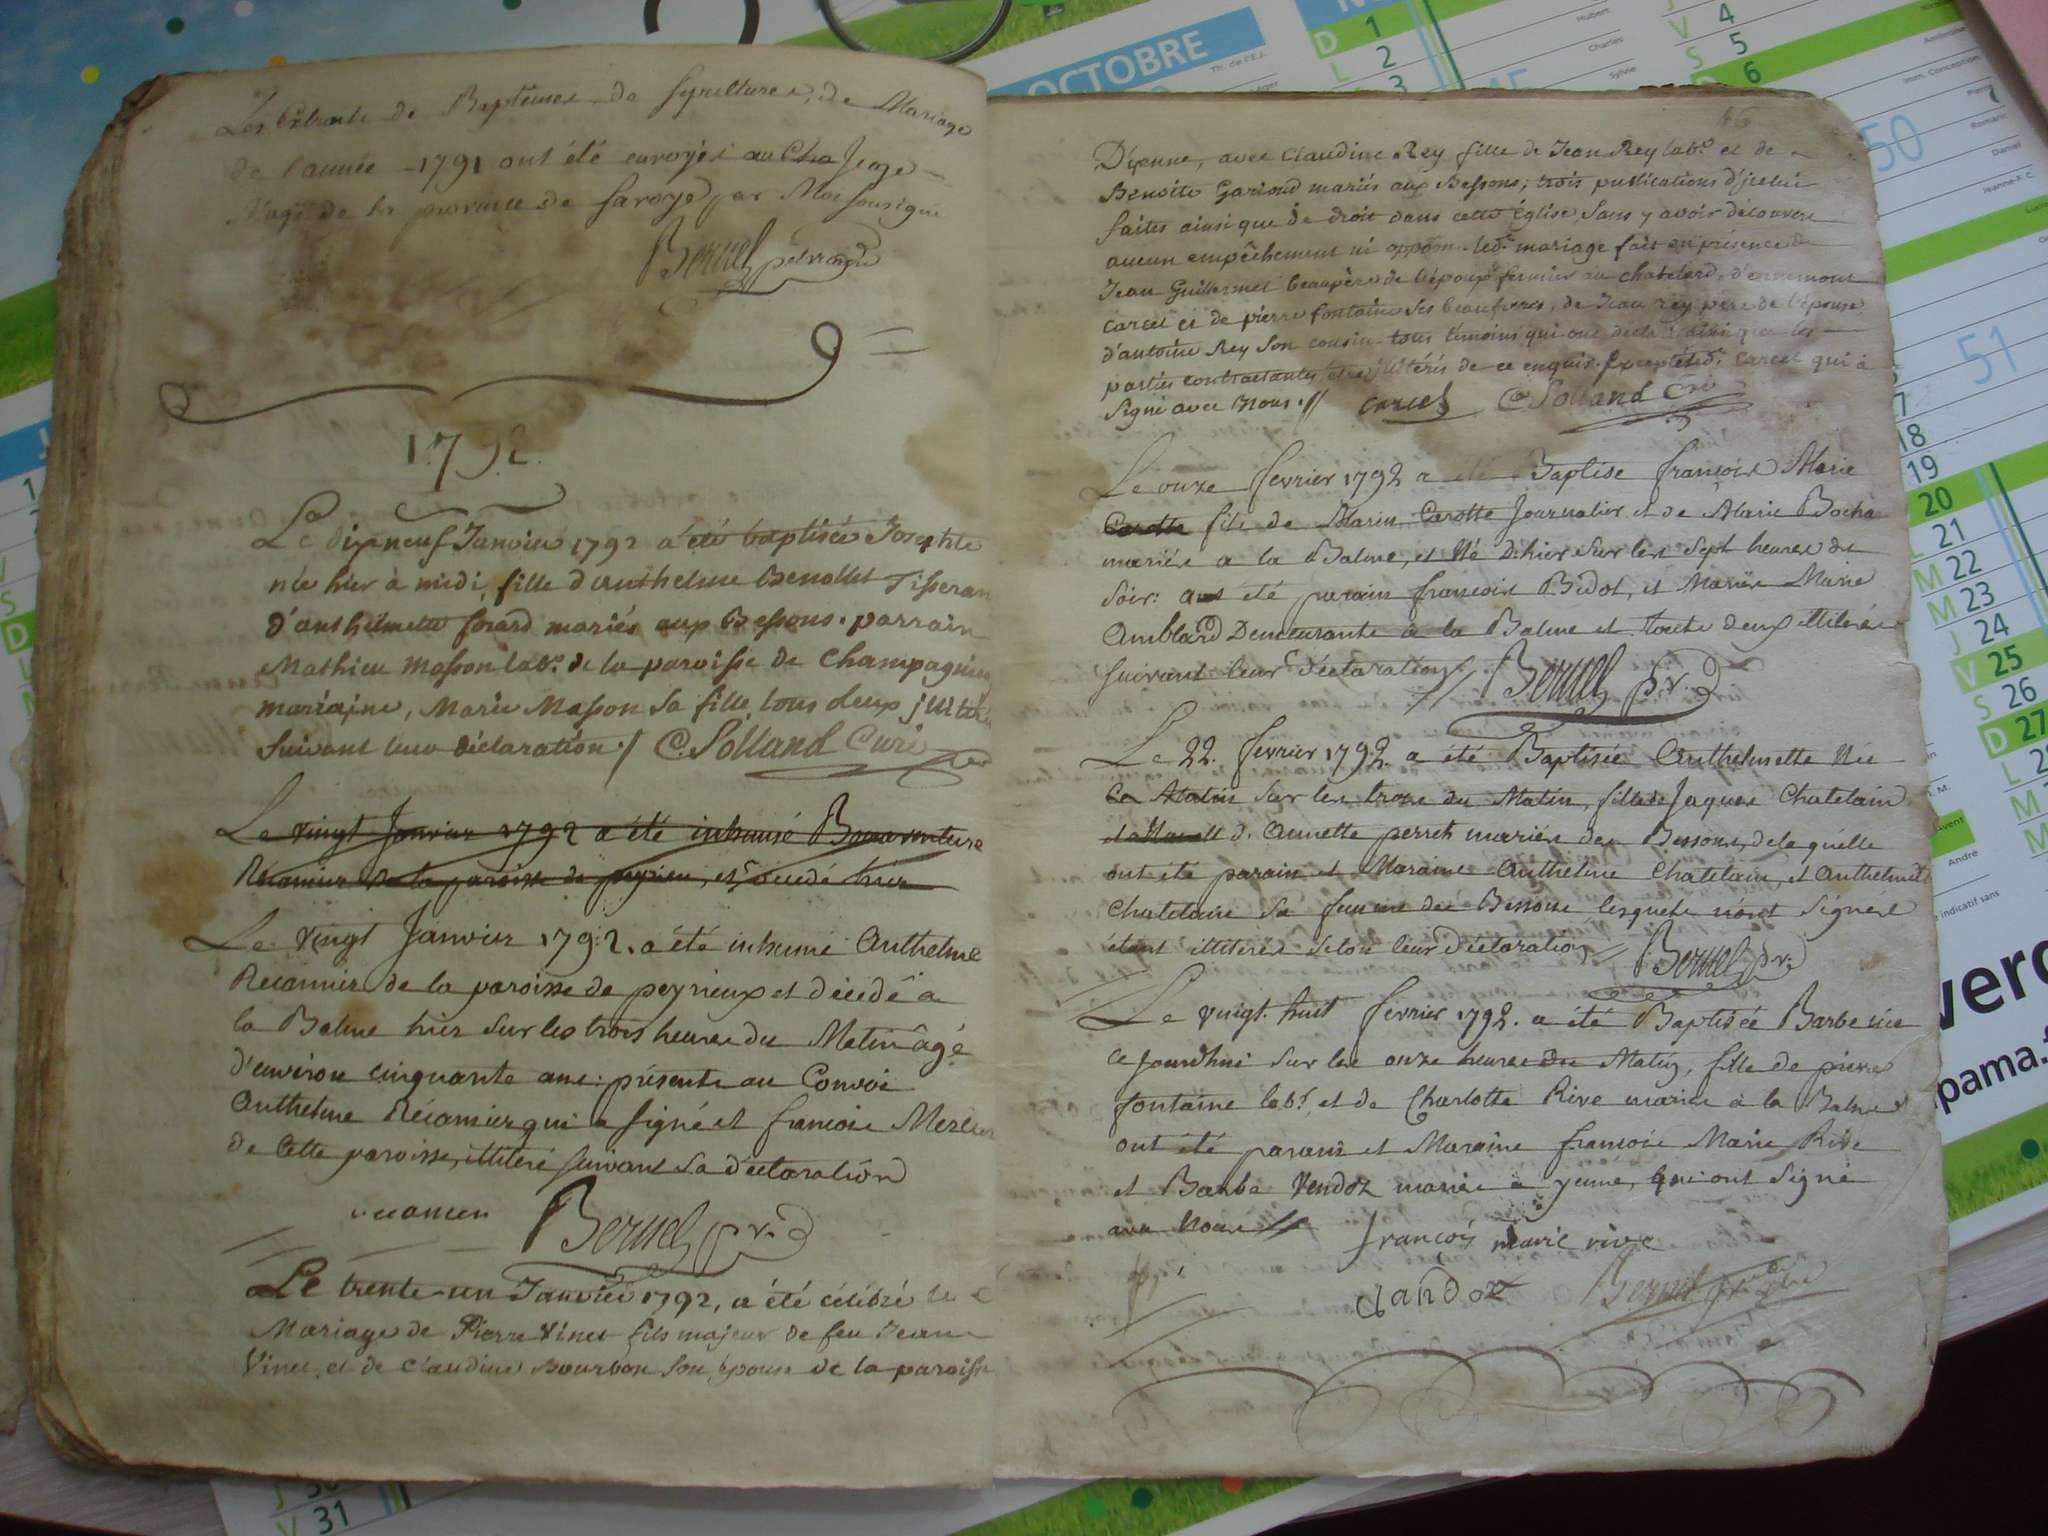 Les Extraits de Baptêmes de sepultures, de Mariage
de l'année 1791 ont été envoyés au Juge
Mage de la province de Savoye par Moi soussigné
Beruel
1792.
Le dixneuf Janvier 1792 a été baptisée Josephte
née hier à midi, fille d'anthelme Benollet Tisseran
d'anthelmette forard mariés aux Bessons. parrain
Mathieu Masson lab.r de la paroisse de Champagnieu
maraine, Marie Masson sa fille, tous deux illitéré
suivant leur déclaration ./ C. Solland Curé
Le vingt Janvier 1792 a été inhumé Bonaventure
Récamier de la paroisse de peyrieu, et décedé hier
Le vingt Janvier 1792. a été inhumé Anthelme
Récamier de la paroisse de peyrieux et décédé à
la Balme hier sur les trois heures du Matin âgé
d'environ cinquante ans: présents au Convoi
Anthelme Récamier qui a signé et francois Mercier
de Cette paroisse, illiteré suivant sa déclaration
Beruel pr.
Le trente-un Janvier 1792, a été célébré le
Mariage de Pierre Vinet fils majeur de feu Jean
Vinet, et de Claudine Bourbon son épouse de la paroisse
D'yenne, avec Claudine Rey fille de Jean Rey lab.r et de
Benoite Garioud mariés aux Bessons; trois publications d'jcelui
faites ainsi que de droit dans cette Église sans y avoir découvert
aucun empêchement ni oppôon. led.t mariage fait en présence de
Jean Guillermet beaupère de l'époux fermier au chatelard,
carcel et de pierre fontaine ses beaufreres, de Jean rey père de l'épouse
d'antoine Rey son cousin tous témoins qui ont déclaré ainsi que les
parties contractantes être illitérés de ce enquis. Excepté led.t Carcel qui à
signé avec Nous ./ carcel C. Solland Cré
Le onze fevrier 1792 a été Baptise françois Marie
Carotte fils de Marin Carotte Journalier et de Marie Bocha
mariés a la Balme, et Né D'hier sur les sept heures du
soir: ont été parain francois Bidot, et Maraine Marie
Amblard Demeurante à la Balme et touts deux illiterés
suivant leur déclaration // Beruel pr.
Le 22. fevrier 1792. a été Baptisée Anthelmette Née
Ce Matin sur les trois du Matin, fille de Jaques Chatelain
d'Annette perret mariés des Bessons, de laquélle
ont été parain et Maraine Anthelme Chatelain, et Anthelmette
Chatelain sa femme des Bessons lesquels n'ont signés
étant illiterés selon leur Déclaration // Beruel pr.
Le vingt huit fevrier 1792. a été Baptisée Barbe née
ce jourdhui sur les onze heures du Matin, fille de pierre
fontaine lab.r et de Charlotte Rive mariés à la Balme
ont été parain et Maraine francois Marie Rive
et Barbe Vendoz mariés a yenne, qui ont signé
avec Nous //
françois marie rive
vandoz Beruel
OCTOBRE